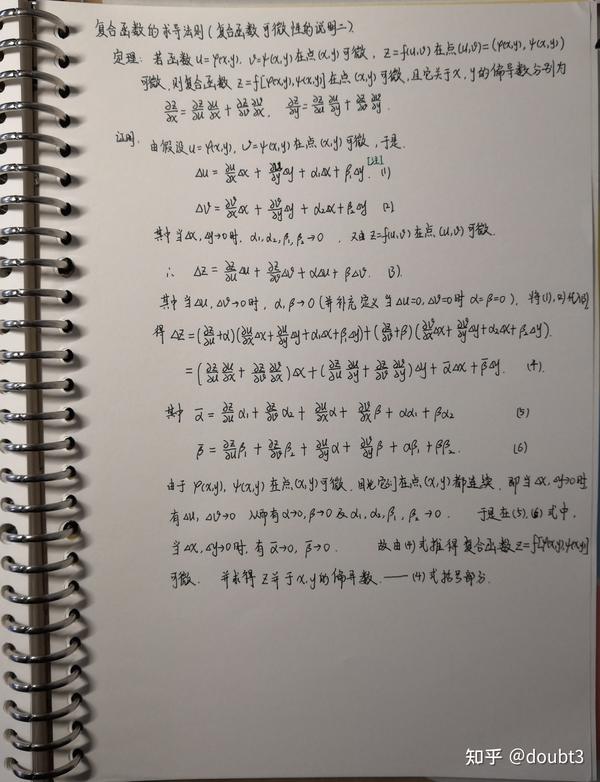 复合函数的求导法则(复合函数可微性的说明二).
定理: 若函数 u=φ(x,y), v=ψ(x,y)在点(x,y)可微, z=f(u,v)在点(u,v)=(φ(x,y), ψ(x,y))
可微, 则复合函数 z=f[φ(x,y),ψ(x,y)]在点(x,y)可微,且它关于x,y的偏导数分别为
∂z/∂x = ∂z/∂u ∂u/∂x + ∂z/∂v ∂v/∂x, ∂z/∂y = ∂z/∂u ∂u/∂y + ∂z/∂v ∂v/∂y.
证明: 由假设 u=φ(x,y), v=ψ(x,y)在点(x,y)可微,于是.
Δu = ∂u/∂x Δx + ∂u/∂y Δy + α₁Δx + β₁Δy. [注] (1)
Δv = ∂v/∂x Δx + ∂v/∂y Δy + α₂Δx + β₂Δy (2)
其中当Δx,Δy→0时, α₁,α₂,β₁,β₂→0 , 又由 z=f(u,v)在点(u,v)可微.
∴ Δz = ∂z/∂u Δu + ∂z/∂v Δv + αΔu + βΔv. (3).
其中当Δu,Δv→0时, α,β→0 (并补充定义当Δu=0,Δv=0时 α=β=0), 将(1),(2)代入(3)
得 Δz=(∂z/∂u+α)(∂u/∂x Δx+∂u/∂y Δy+α₁Δx+β₁Δy)+(∂z/∂v+β)(∂v/∂x Δx+∂v/∂y Δy+α₂Δx+β₂Δy).
=(∂z/∂u ∂u/∂x + ∂z/∂v ∂v/∂x)Δx+(∂z/∂u ∂u/∂y + ∂z/∂v ∂v/∂y)Δy+ᾱΔx+β̄Δy. (4).
其中 ᾱ = ∂z/∂u α₁ + ∂z/∂v α₂ + ∂u/∂x α + ∂v/∂x β + αα₁ + βα₂ (5)
β̄ = ∂z/∂u β₁ + ∂z/∂v β₂ + ∂u/∂y α + ∂v/∂y β + αβ₁ + ββ₂. (6)
由于 φ(x,y), ψ(x,y)在点(x,y)可微, 因此它们在点(x,y)都连续. 即当Δx,Δy→0时
有Δu,Δv→0 从而有α→0,β→0及α₁,α₂,β₁,β₂→0. 于是在(5),(6)式中,
当Δx,Δy→0时,有ᾱ→0,β̄→0. 故由(4)式推得复合函数z=f[φ(x,y),ψ(x,y)]
可微. 并求得z关于x,y的偏导数.——(4)式括号部分.
知乎 @doubt3